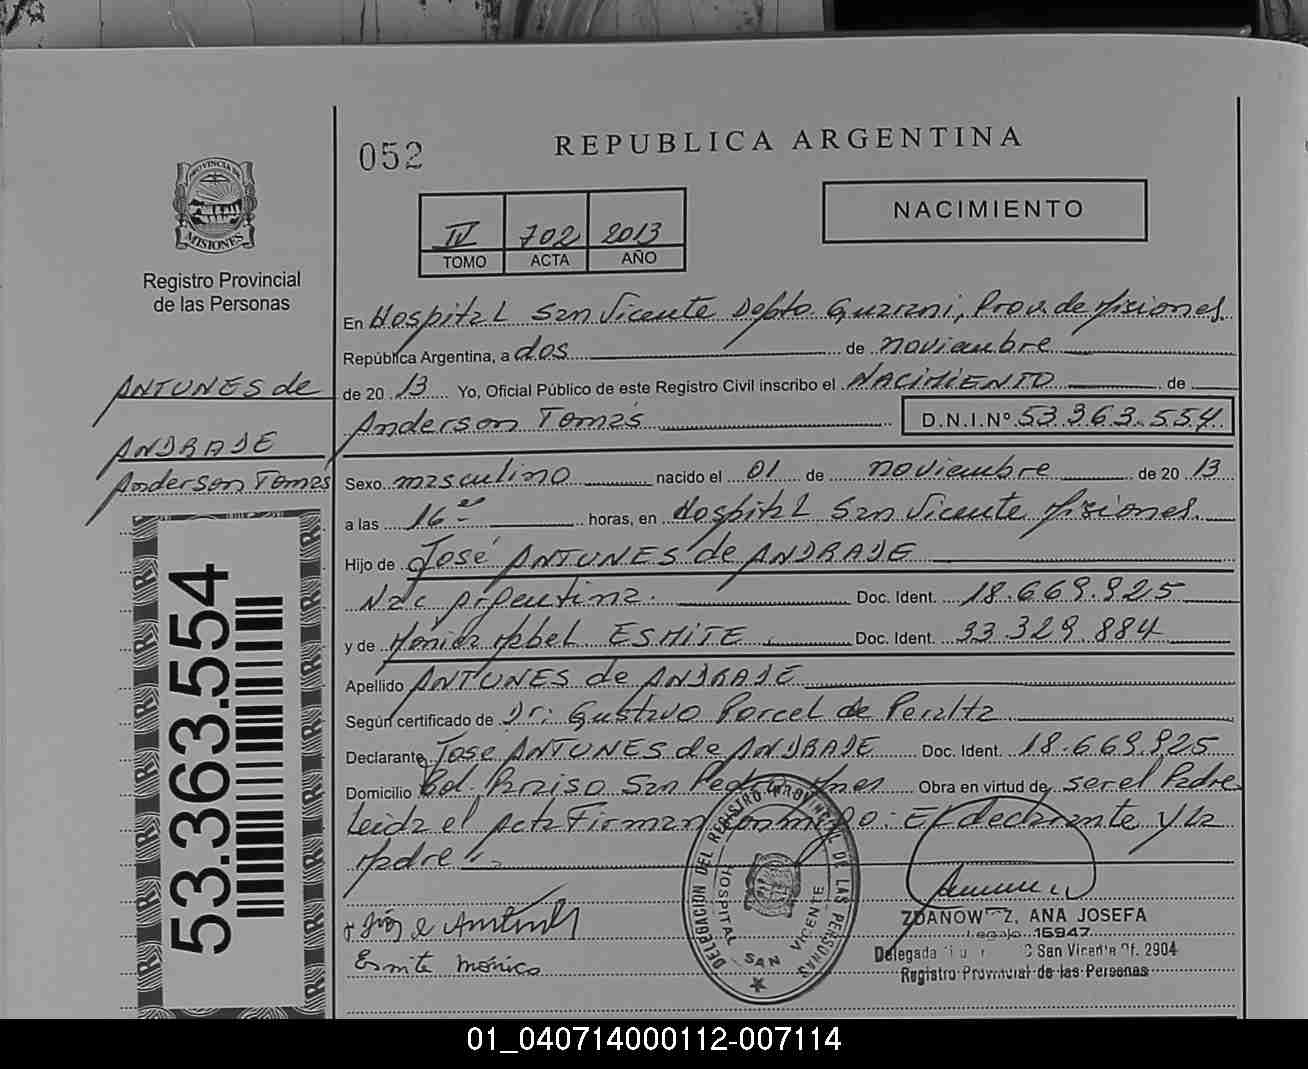 052
REPUBLICA ARGENTINA
NACIMIENTO
PROVINCIA DE
MISIONES
Registro Provincial
de las Personas
IV 702 2013
TOMO ACTA AÑO
En Hospital San Vicente Depto Guarani, Prov. de Misiones
República Argentina, a dos de noviembre
de 20 13 Yo, Oficial Público de este Registro Civil inscribo el NACIMIENTO de
Anderson Tomás D.N.I.Nº 53.363.554
ANTUNES de
ANDRADE
Anderson Tomas
Sexo masculino nacido el 01 de noviembre de 20 13
a las 16 horas, en Hospital San Vicente Misiones.
Hijo de José ANTUNES de ANDRADE
Nac Argentina. Doc. Ident. 18.669.925
y de Mónica Mabel ESMITE Doc. Ident. 33.329.884
Apellido ANTUNES de ANDRADE
Según certificado de Dr: Gustavo Porcel de Peralta
Declarante Jose ANTUNES de ANDRADE Doc. Ident. 18.669.925
Domicilio Col. Paraiso San Pedro Mnes Obra en virtud de ser el Padre
Leida el Acta Firman conmigo: El declarante y la
Madre
53.363.554
Esmite Mónica
DELEGACION DEL REGISTRO PROVINCIAL DE LAS PERSONAS
HOSPITAL SAN VICENTE
ANA JOSEFA
Legajo 16947
Delegada San Vicente Of. 2904
Registro Provincial de las Personas
01_040714000112-007114